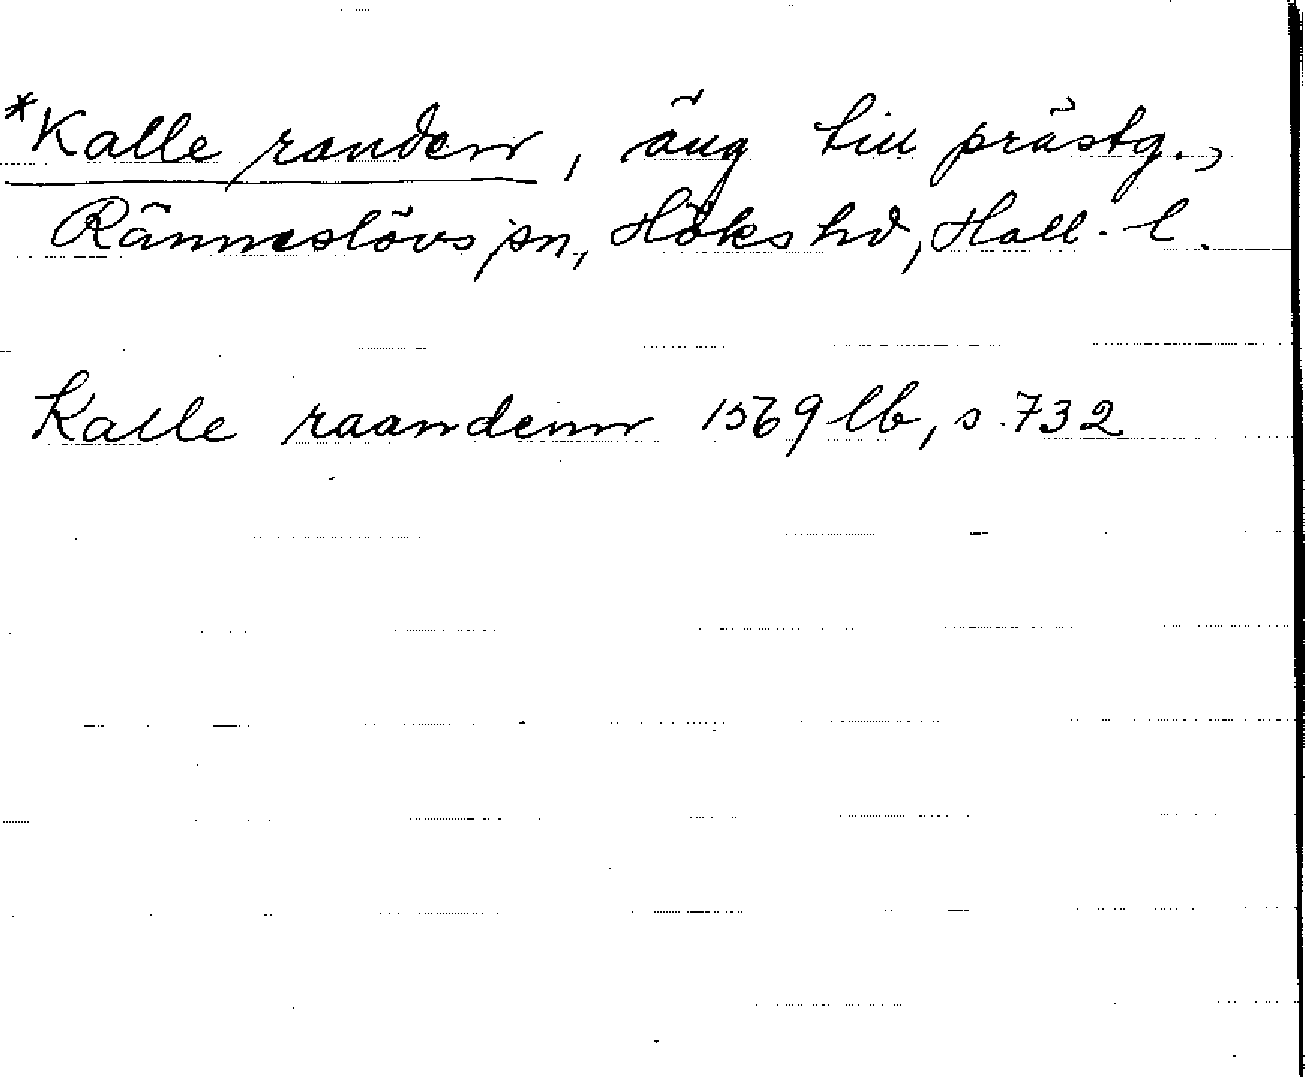 *Kalle randen, äng till prästg.,
Ränneslövs sn, Höks hd, Hall. l.
Kalle raandenn 1569 lb, s. 732